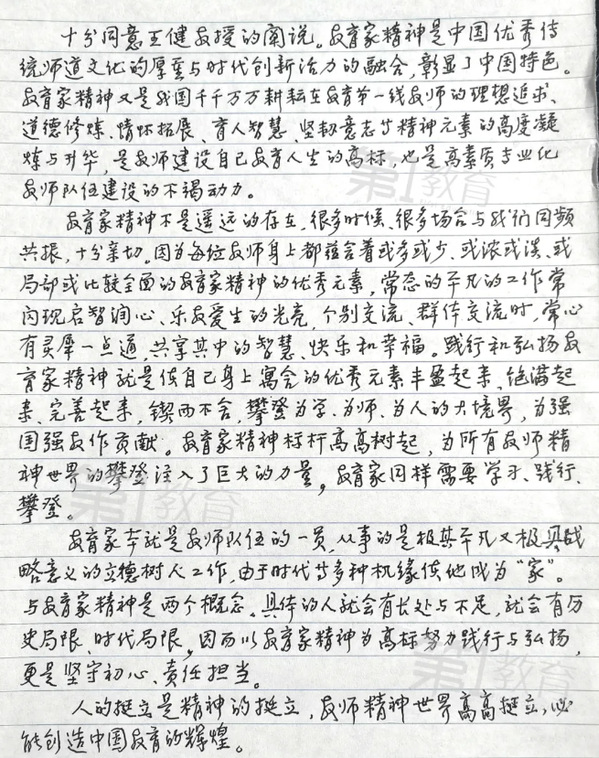 十分同意王健教授的阐说。教育家精神是中国优秀传
统师道文化的厚重与时代创新活力的融合，彰显了中国特色。
教育家精神又是我国千千万万耕耘在教育第一线教师的理想追求、
道德修炼、情怀拓展、育人智慧、坚韧意志等精神元素的高度凝
炼与升华，是教师建设自己教育人生的高标，也是高素质专业化
教师队伍建设的不竭动力。
教育家精神不是遥远的存在，很多时候、很多场合与我们同频
共振，十分亲切。因为每位教师身上都蕴含着或多或少、或浓或淡、或
局部或比较全面的教育家精神的优秀元素，常态的平凡的工作常
闪现启智润心、乐教爱生的光亮，个别交流、群体交流时，常心
有灵犀一点通，共享其中的智慧、快乐和幸福。践行和弘扬教
育家精神就是使自己身上寓含的优秀元素丰盈起来、饱满起
来、完善起来，锲而不舍，攀登为学、为师、为人的大境界，为强
国强教作贡献。教育家精神标杆高高树起，为所有教师精
神世界的攀登注入了巨大的力量，教育家同样需要学习、践行、
攀登。
教育家本就是教师队伍的一员，从事的是极其平凡又极具战
略意义的立德树人工作，由于时代等多种机缘使他成为“家”。
与教育家精神是两个概念。具体的人就会有长处与不足，就会有历
史局限、时代局限。因而以教育家精神为高标努力践行与弘扬，
更是坚守初心、责任担当。
人的挺立是精神的挺立，教师精神世界高高挺立，必
能创造中国教育的辉煌。
第1教育
第1教育
第1教育